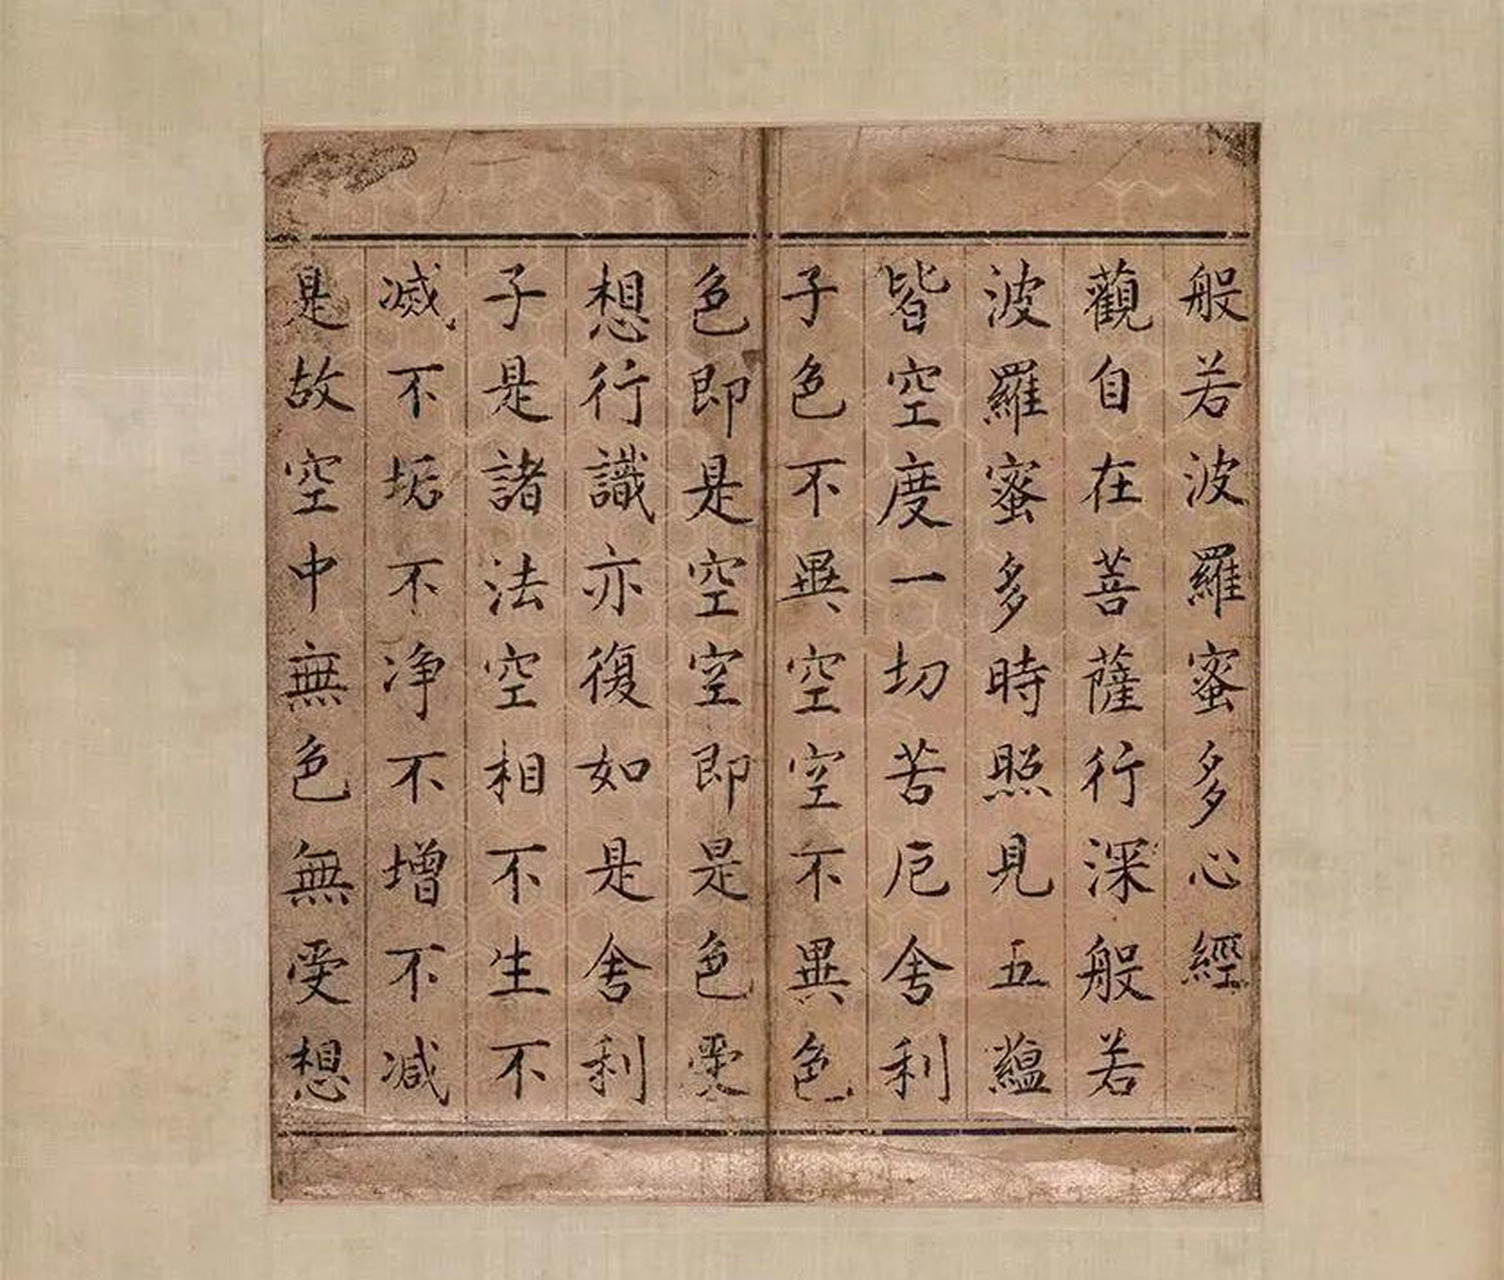 般若波羅蜜多心經
觀自在菩薩行深般若
波羅蜜多時照見五蘊
皆空度一切苦厄舍利
子色不異空空不異色
色即是空空即是色受
想行識亦復如是舍利
子是諸法空相不生不
滅不垢不净不增不減
是故空中無色無受想